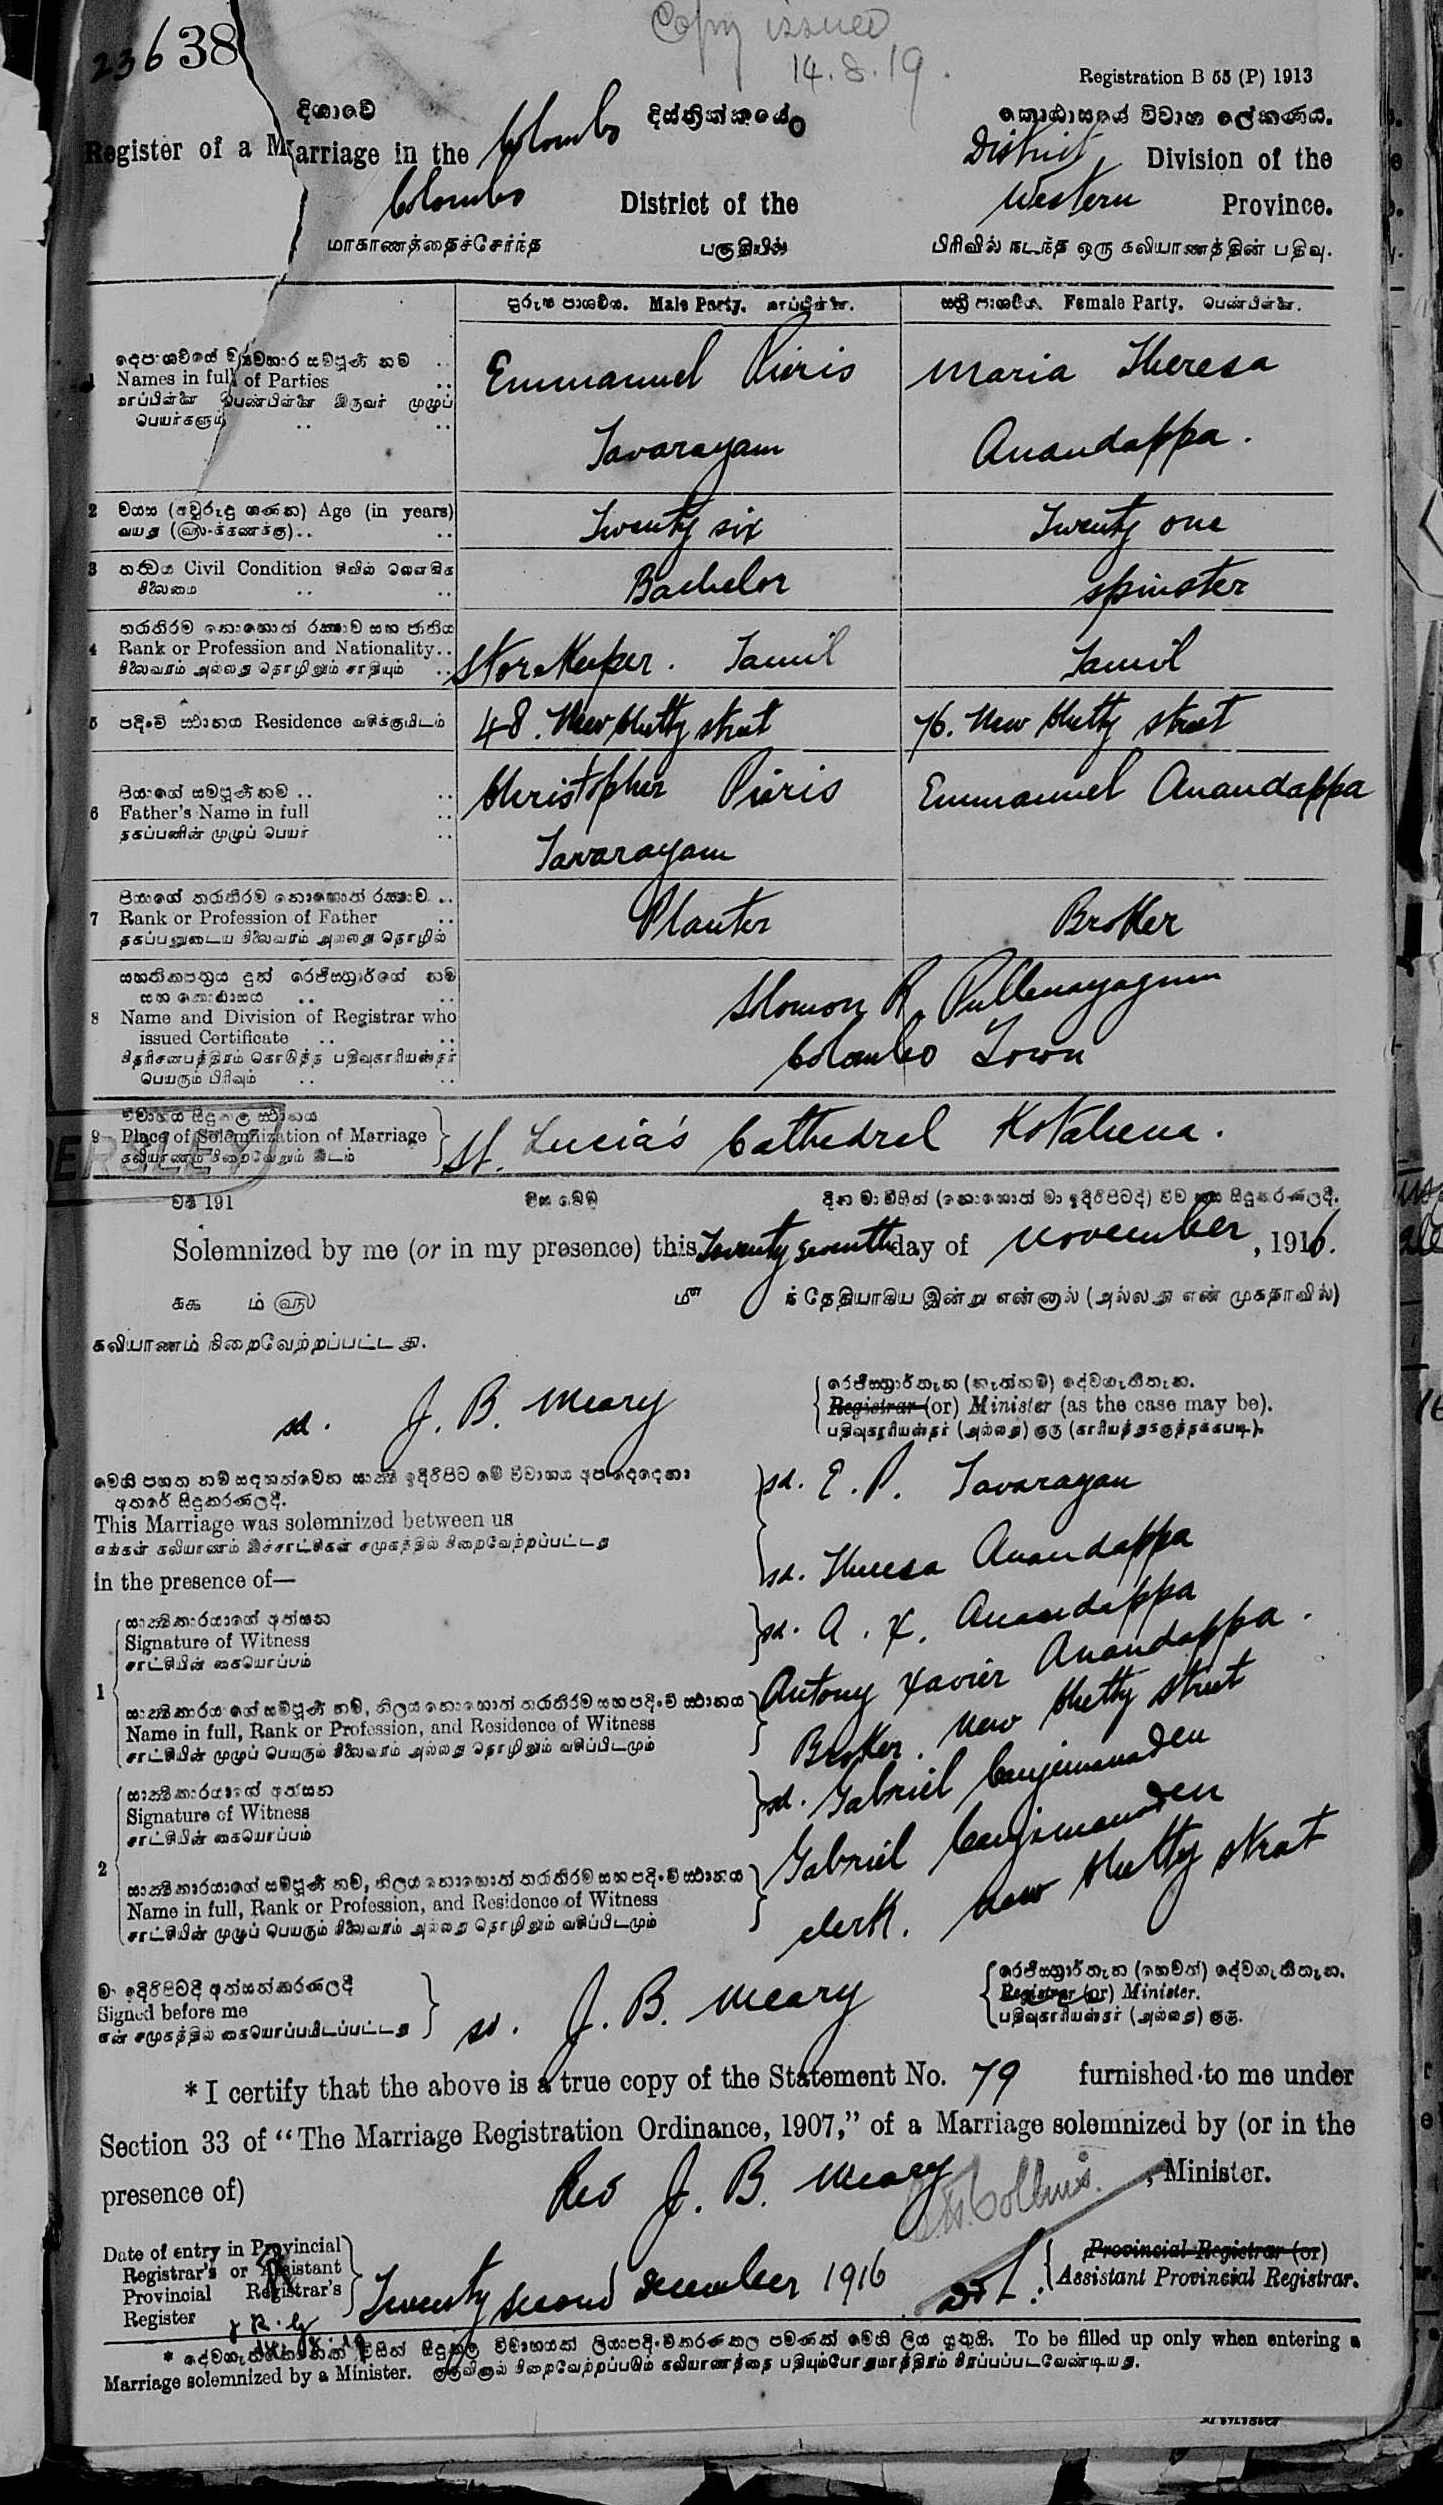 23638
Copy issued
14.8.19.
Registration B 55 (P) 1913
දිශාවේ දිස්ත්‍රික්කයේ කොට්ඨාසයේ විවාහ ලේකණය.
Register of a Marriage in the Colombo District Division of the
Colombo District of the Western Province.
மாகாணத்தைச்சேர்ந்த பகுதியில் பிரிவில் நடந்த ஒரு கலியாணத்தின் பதிவு.
Male Party. மாப்பிள்ளை. Female Party. பெண்பிள்ளை.
1 Names in full of Parties
மாப்பிள்ளை பெண்பிள்ளை இருவர் முழுப்
பெயர்களும்
Emmanuel Pieris Tavarayam
Maria Theresa Anandappa.
2 වයස (අවුරුදු ගණන) Age (in years)
வயது (௵-க்கணக்கு)
Twenty six
Twenty one
3 තත්වය Civil Condition சிவில் லௌகிக
நிலைமை
Bachelor
spinster
4 Rank or Profession and Nationality
நிலைவரம் அல்லது தொழிலும் சாதியும்
Store Keeper. Tamil
Tamil
5 පදිංචි ස්ථානය Residence வசிக்குமிடம்
48. New Chetty street
76. New Chetty street
6 පියාගේ සම්පූර්ණ නම
Father's Name in full
தகப்பனின் முழுப் பெயர்
Christopher Pieris Tavarayam
Emmanuel Anandappa
7 Rank or Profession of Father
தகப்பனுடைய நிலைவரம் அல்லது தொழில்
Planter
Broker
8 Name and Division of Registrar who
issued Certificate
பெயரும் பிரிவும்
Solomon R. Pullenayagum
Colombo Town
9 විවාහය සිදුකළ ස්ථානය
Place of Solemnization of Marriage
கலியாணம் நிறைவேறும் இடம்
St. Lucia's Cathedral Kotahena.
වර්ෂ 191
Solemnized by me (or in my presence) this Twenty seventh day of November, 1916.
௧௯ ம் ௵ ௴ ந் தேதியாகிய இன்று என்னால் (அல்லது என் முகதாவில்)
கலியாணம் நிறைவேற்றப்பட்டது.
sd. J. B. Meary
Registrar (or) Minister (as the case may be).
பதிவுகாரியஸ்தர் (அல்லது) குரு (காரியத்துக்குத்தக்கபடி).
This Marriage was solemnized between us
எங்கள் கலியாணம் இச்சாட்சிகள் சமுகத்தில் நிறைவேற்றப்பட்டது
in the presence of—
sd. E. P. Tavarayan
sd. Theresa Anandappa
1 සාක්ෂිකාරයාගේ අත්සන
Signature of Witness
சாட்சியின் கையொப்பம்
sd. A. X. Anandappa
Name in full, Rank or Profession, and Residence of Witness
சாட்சியின் முழுப் பெயரும் நிலைவரம் அல்லது தொழிலும் வசிப்பிடமும்
Antony Xavier Anandappa.
Broker. New Chetty street
2 සාක්ෂිකාරයාගේ අත්සන
Signature of Witness
சாட்சியின் கையொப்பம்
sd. Gabriel Canjemanaden
Name in full, Rank or Profession, and Residence of Witness
சாட்சியின் முழுப் பெயரும் நிலைவரம் அல்லது தொழிலும் வசிப்பிடமும்
Gabriel Canjemanaden
clerk. New Chetty street
මා ඉදිරිපිටදී අත්සන්කරණලදී
Signed before me
என் சமுகத்தில் கையொப்பமிடப்பட்டது
sd. J. B. Meary
Registrar (or) Minister.
பதிவுகாரியஸ்தர் (அல்லது) குரு.
* I certify that the above is a true copy of the Statement No. 79 furnished to me under
Section 33 of “The Marriage Registration Ordinance, 1907,” of a Marriage solemnized by (or in the
presence of) Rev J. B. Meary, Minister.
Date of entry in Provincial
Registrar's or Assistant
Provincial Registrar's
Register
Twenty second December 1916
Provincial Registrar (or)
Assistant Provincial Registrar.
To be filled up only when entering a
Marriage solemnized by a Minister. குருவினால் நிறைவேற்றப்படும் கலியாணத்தை பதியும்போதுமாத்திரம் நிரப்பப்படவேண்டியது.